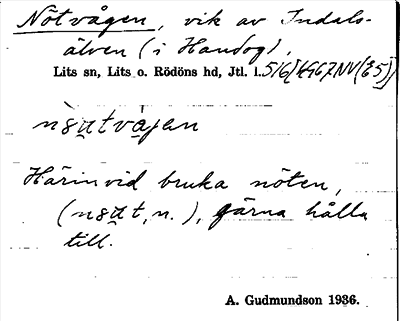 Nötvågen, vik av Indals-
älven (i Handog),
Lits sn, Lits o. Rödöns hd, Jtl. l.
Härinvid bruka nöten,
(nsu̲t, n.), gärna hålla
till.
A. Gudmundson 1936.